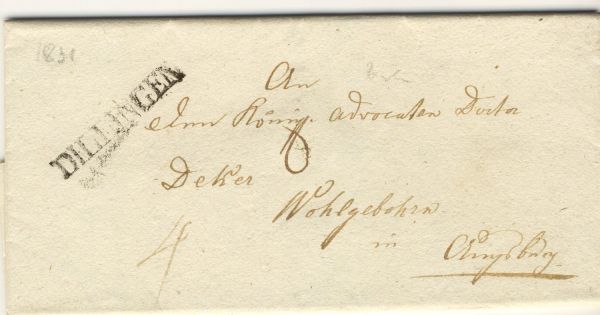 1831
DILLINGEN
An
den König. Advocaten Doctor
8
Deker
Wohlgebohrn
4
in
Augsburg